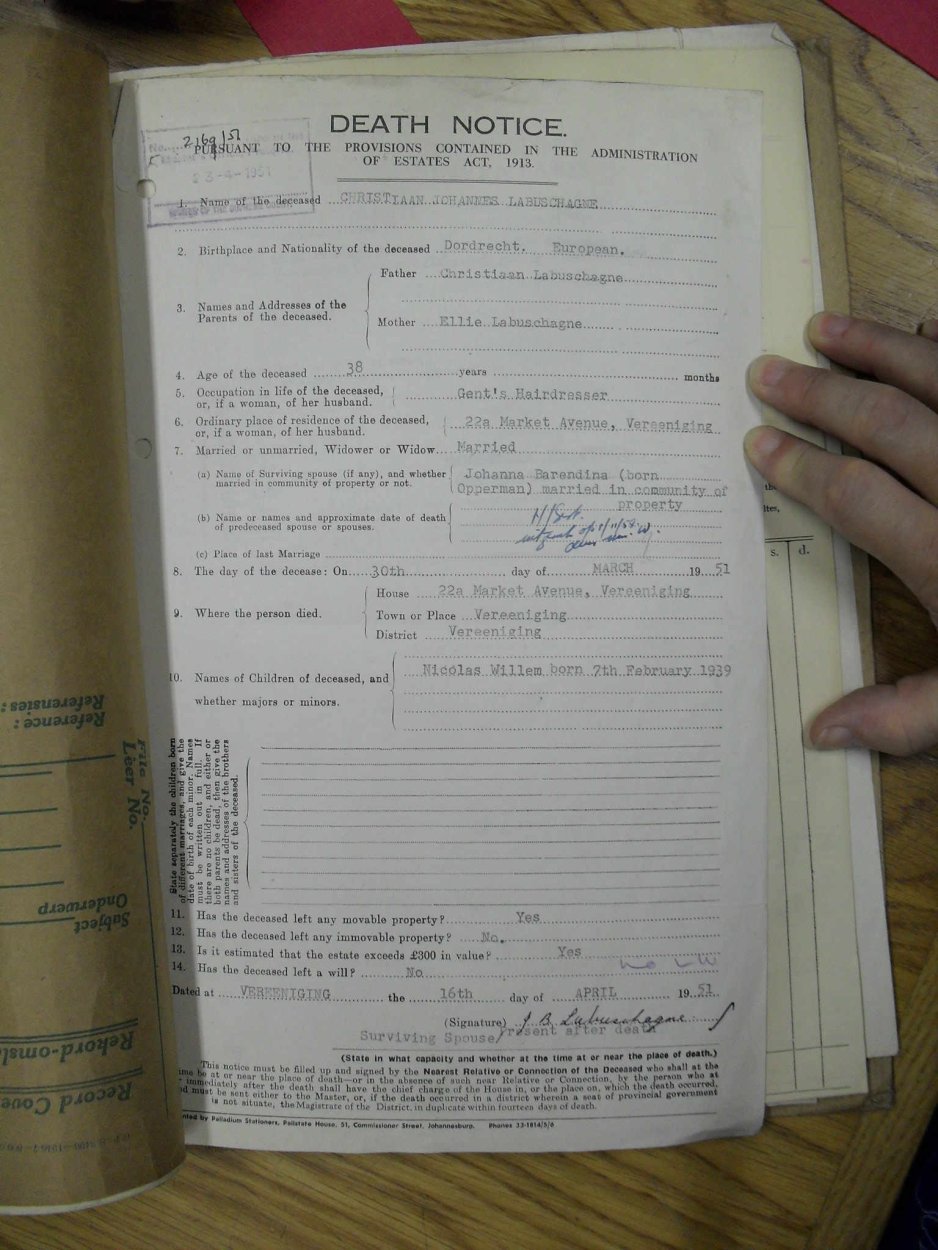 2169/51
23-4-1951
DEATH NOTICE.
PURSUANT TO THE PROVISIONS CONTAINED IN THE ADMINISTRATION
OF ESTATES ACT, 1913.
1. Name of the deceased CHRISTIAAN JOHANNES LABUSCHAGNE
2. Birthplace and Nationality of the deceased Dordrecht. European.
Father Christiaan Labuschagne
3. Names and Addresses of the
Parents of the deceased.
Mother Ellie Labuschagne
4. Age of the deceased 38 years months
5. Occupation in life of the deceased,
or, if a woman, of her husband. Gent's Hairdresser
6. Ordinary place of residence of the deceased,
or, if a woman, of her husband. 22a Market Avenue, Vereeniging
7. Married or unmarried, Widower or Widow Married
(a) Name of Surviving spouse (if any), and whether
married in community of property or not.
Johanna Barendina (born
Opperman) married in community of
property
(b) Name or names and approximate date of death
of predeceased spouse or spouses.
(c) Place of last Marriage
8. The day of the decease: On 30th day of MARCH 1951
House 22a Market Avenue, Vereeniging
9. Where the person died. Town or Place Vereeniging
District Vereeniging
Nicolas Willem born 7th February 1939
10. Names of Children of deceased, and
whether majors or minors.
State separately the children born
of different marriages, and give the
date of birth of each minor. Names
must be written out in full. If
there are no children, and either or
both parents be dead, then give the
names and addresses of the brothers
and sisters of the deceased.
11. Has the deceased left any movable property? Yes
12. Has the deceased left any immovable property? No.
13. Is it estimated that the estate exceeds £300 in value? Yes
14. Has the deceased left a will? No
Dated at VEREENIGING the 16th day of APRIL 1951
(Signature) J B Labuschagne
Surviving Spouse/Present after death
(State in what capacity and whether at the time at or near the place of death.)
This notice must be filled up and signed by the Nearest Relative or Connection of the Deceased who shall at the
time be at or near the place of death—or in the absence of such near Relative or Connection, by the person who at
immediately after the death shall have the chief charge of the House in, or the place on, which the death occurred,
must be sent either to the Master, or, if the death occurred in a district wherein a seat of provincial government
is not situate, the Magistrate of the District, in duplicate within fourteen days of death.
nted by Palladium Stationers, Pallstate House, 51, Commissioner Street, Johannesburg. Phones 33-1814/5/6
s. d.
Referensies:
Reference:
File No.
Lêer No.
Onderwerp
Subject
Rekord-omsl
Record Cove